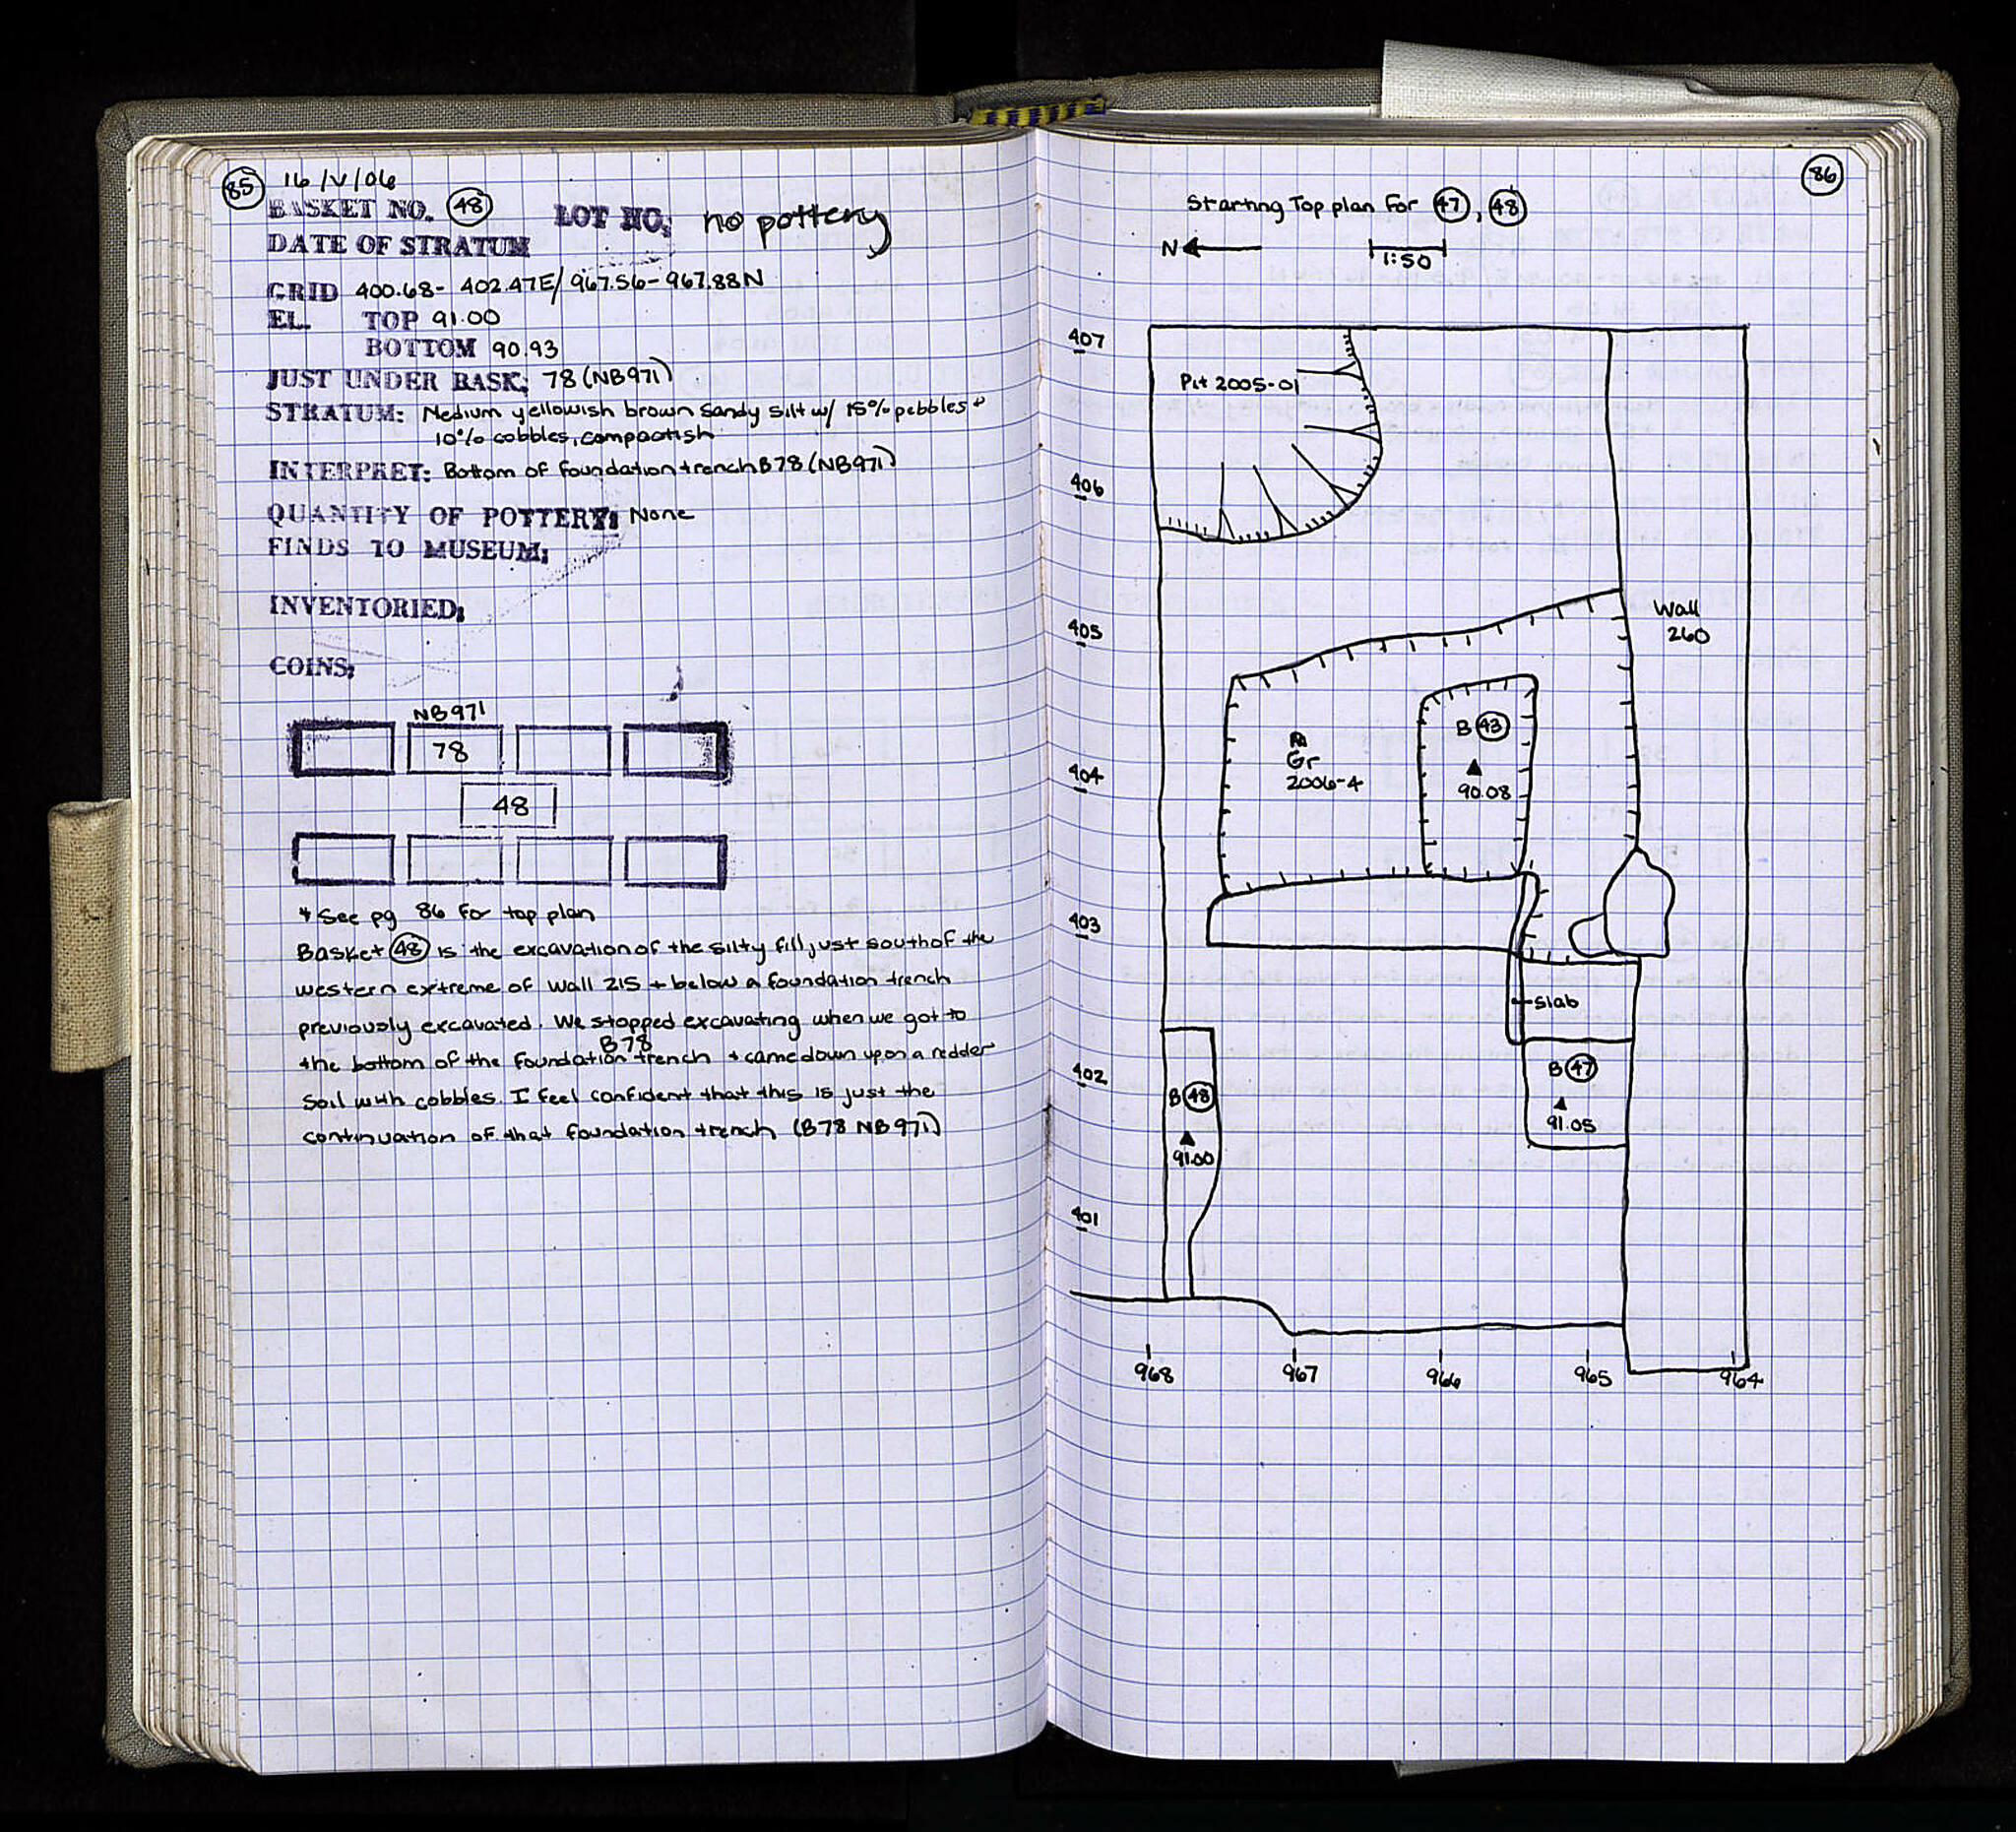 85 16/V/06
BASKET NO. 48 LOT NO: no pottery
DATE OF STRATUM
GRID 400.68- 402.47E/ 967.56- 967.88N
EL. TOP 91.00
BOTTOM 90.93
JUST UNDER BASK: 78 (NB971)
STRATUM: Medium yellowish brown sandy silt w/ 15% pebbles +
10% cobbles, compactish
INTERPRET: Bottom of foundation trench B78 (NB971)
QUANTITY OF POTTERY: None
FINDS TO MUSEUM:
INVENTORIED:
COINS:
NB971
78
48
* See pg 86 for top plan
Basket 48 is the excavation of the silty fill just south of the
western extreme of wall 215 + below a foundation trench
previously excavated. We stopped excavating when we got to
B78
the bottom of the foundation trench + came down upon a redder
soil with cobbles. I feel confident that this is just the
continuation of that foundation trench (B78 NB971)
86
Starting Top plan for 47, 48
N 1:50
407
Pit 2005-01
406
405
Wall
260
B 43
Gr
2006-4
404
90.08
403
slab
402
B 47
91.05
B 48
91.00
401
968 967 966 965 964